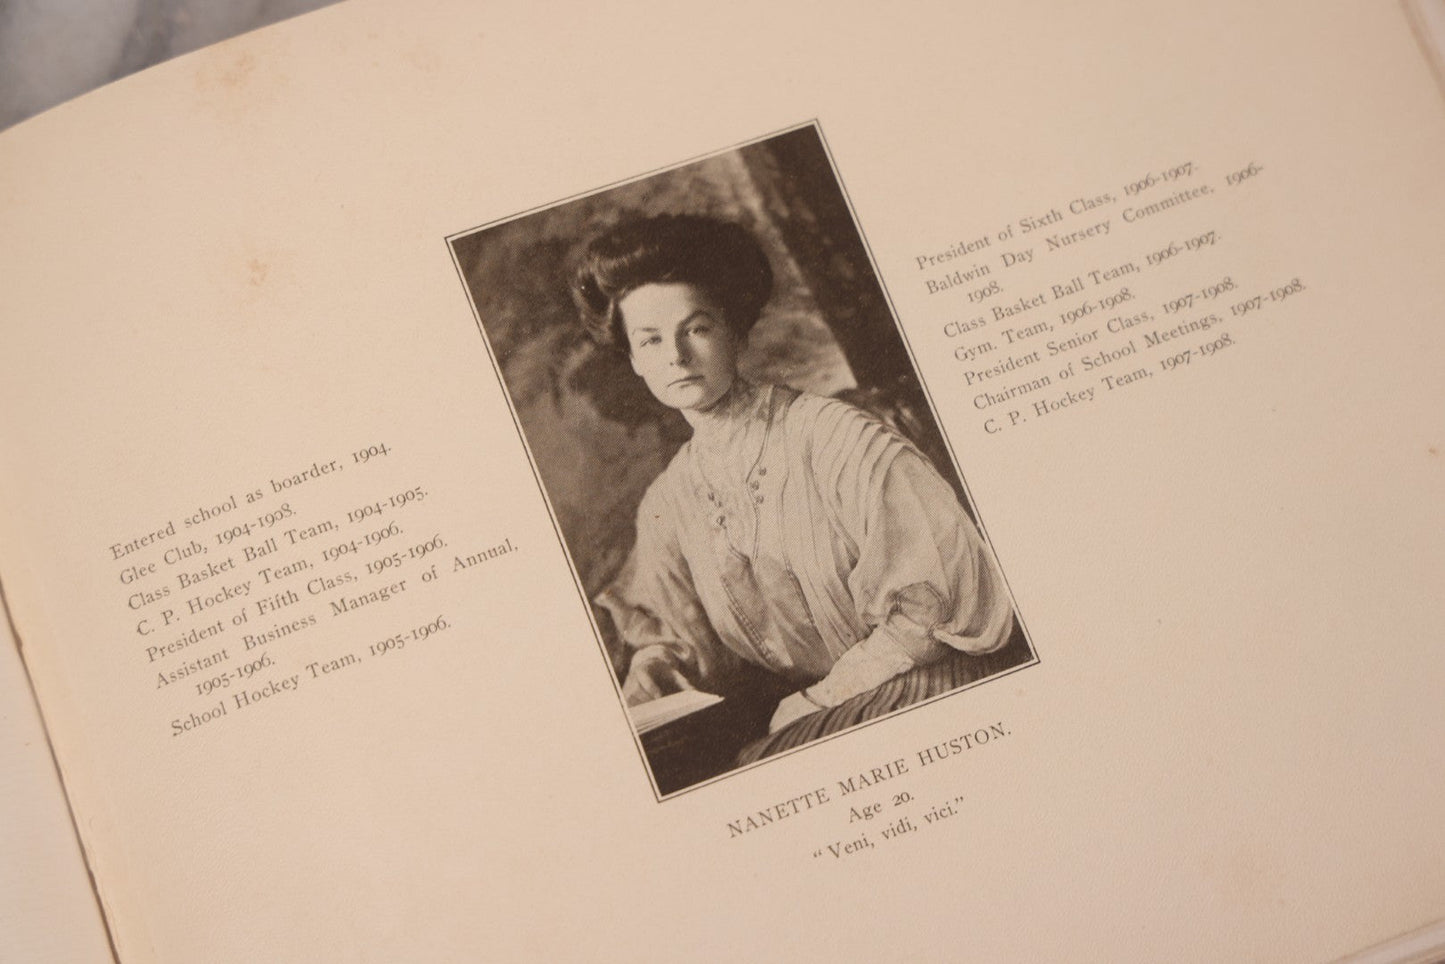 Entered school as boarder, 1904.
Glee Club, 1904-1908.
Class Basket Ball Team, 1904-1905.
C. P. Hockey Team, 1904-1906.
President of Fifth Class, 1905-1906.
Assistant Business Manager of Annual,
1905-1906.
School Hockey Team, 1905-1906.
President of Sixth Class, 1906-1907.
Baldwin Day Nursery Committee, 1906-
1908.
Class Basket Ball Team, 1906-1907.
Gym. Team, 1906-1908.
President Senior Class, 1907-1908.
Chairman of School Meetings, 1907-1908.
C. P. Hockey Team, 1907-1908.
NANETTE MARIE HUSTON.
Age 20.
“Veni, vidi, vici.”